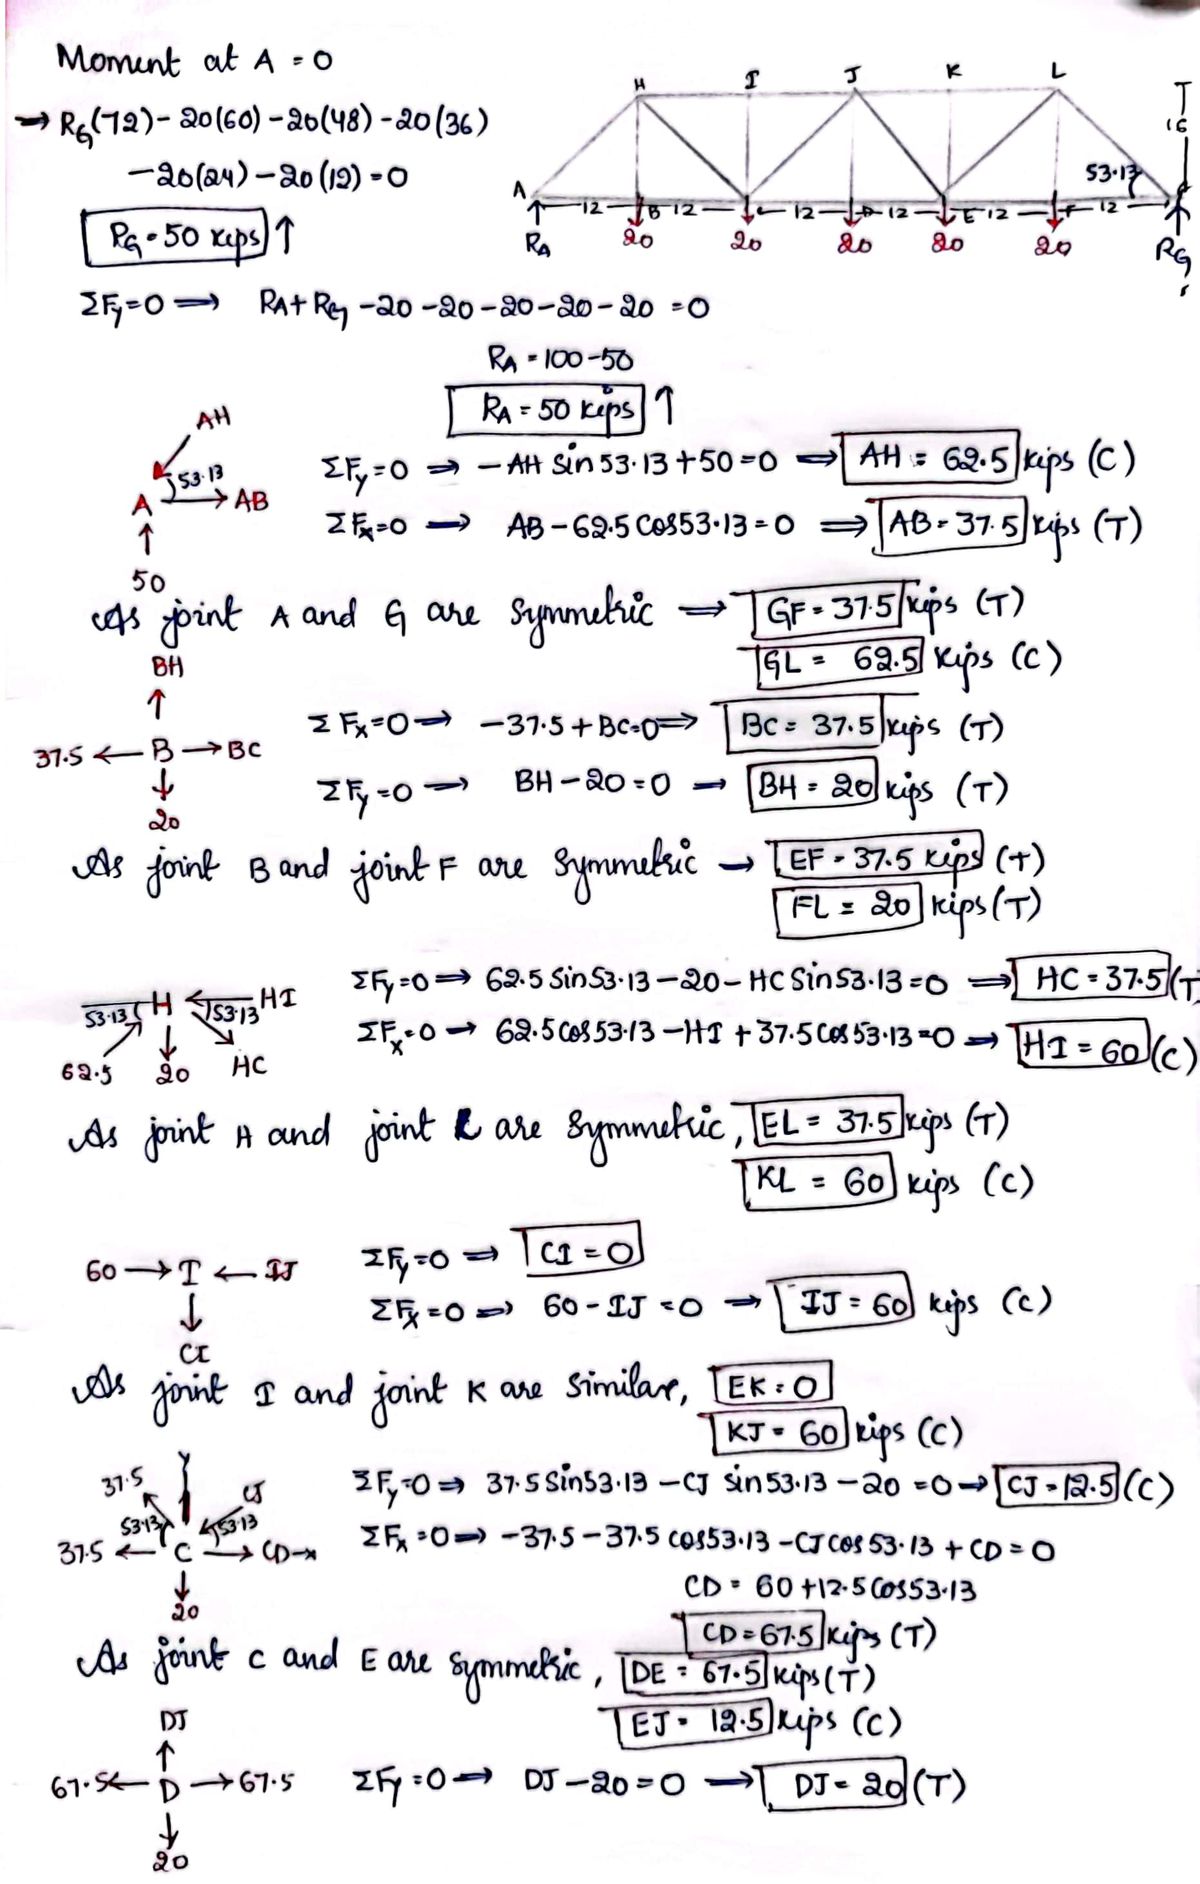 Moment at A = 0
→ RG(72) - 20(60) - 20(48) - 20(36)
-20(24) - 20(12) = 0
RG = 50 kips ↑
H I J K L
16
A 53.13
12 B 12 C 12 D 12 E 12 F 12
RA 20 20 20 20 20 RG
ΣFy=0 ⟹ RA + RG -20 -20 -20 -20 -20 = 0
RA = 100-50
RA = 50 kips ↑
AH
53.13
A → AB
↑
50
ΣFy=0 ⟹ -AH Sin 53.13 + 50 = 0 ⟹ AH = 62.5 kips (C)
ΣFx=0 ⟶ AB - 62.5 Cos 53.13 = 0 ⟹ AB = 37.5 kips (T)
As joint A and G are Symmetric ⟹ GF = 37.5 kips (T)
GL = 62.5 kips (C)
BH
↑
37.5 ← B → BC
↓
20
ΣFx=0 ⟶ -37.5 + BC=0 ⟹ BC = 37.5 kips (T)
ΣFy=0 ⟶ BH - 20 = 0 → BH = 20 kips (T)
As joint B and joint F are Symmetric → EF = 37.5 kips (T)
FL = 20 kips (T)
53.13 H ← 53.13 HI
62.5 20 HC
ΣFy=0 ⟹ 62.5 Sin 53.13 - 20 - HC Sin 53.13 = 0 ⟹ HC = 37.5 (T
ΣFx=0 → 62.5 cos 53.13 - HI + 37.5 cos 53.13 = 0 ⟹ HI = 60 (C)
As joint H and joint L are Symmetric, EL = 37.5 kips (T)
KL = 60 kips (C)
60 → I ← IJ
↓
CI
ΣFy=0 ⟹ CI = 0
ΣFx=0 ⟹ 60 - IJ = 0 → IJ = 60 kips (C)
As joint I and joint K are Similar, EK = 0
KJ = 60 kips (C)
37.5 CJ
53.13 53.13
37.5 ← C → CD
↓
20
ΣFy=0 ⟹ 37.5 Sin 53.13 - CJ sin 53.13 - 20 = 0 → CJ = 12.5 (C)
ΣFx=0 ⟹ -37.5 - 37.5 cos 53.13 - CJ cos 53.13 + CD = 0
CD = 60 + 12.5 Cos 53.13
CD = 67.5 kips (T)
As joint C and E are symmetric, DE = 67.5 kips (T)
EJ = 12.5 kips (C)
DJ
↑
67.5 ← D → 67.5
↓
20
ΣFy=0 ⟶ DJ - 20 = 0 ⟶ DJ = 20 (T)